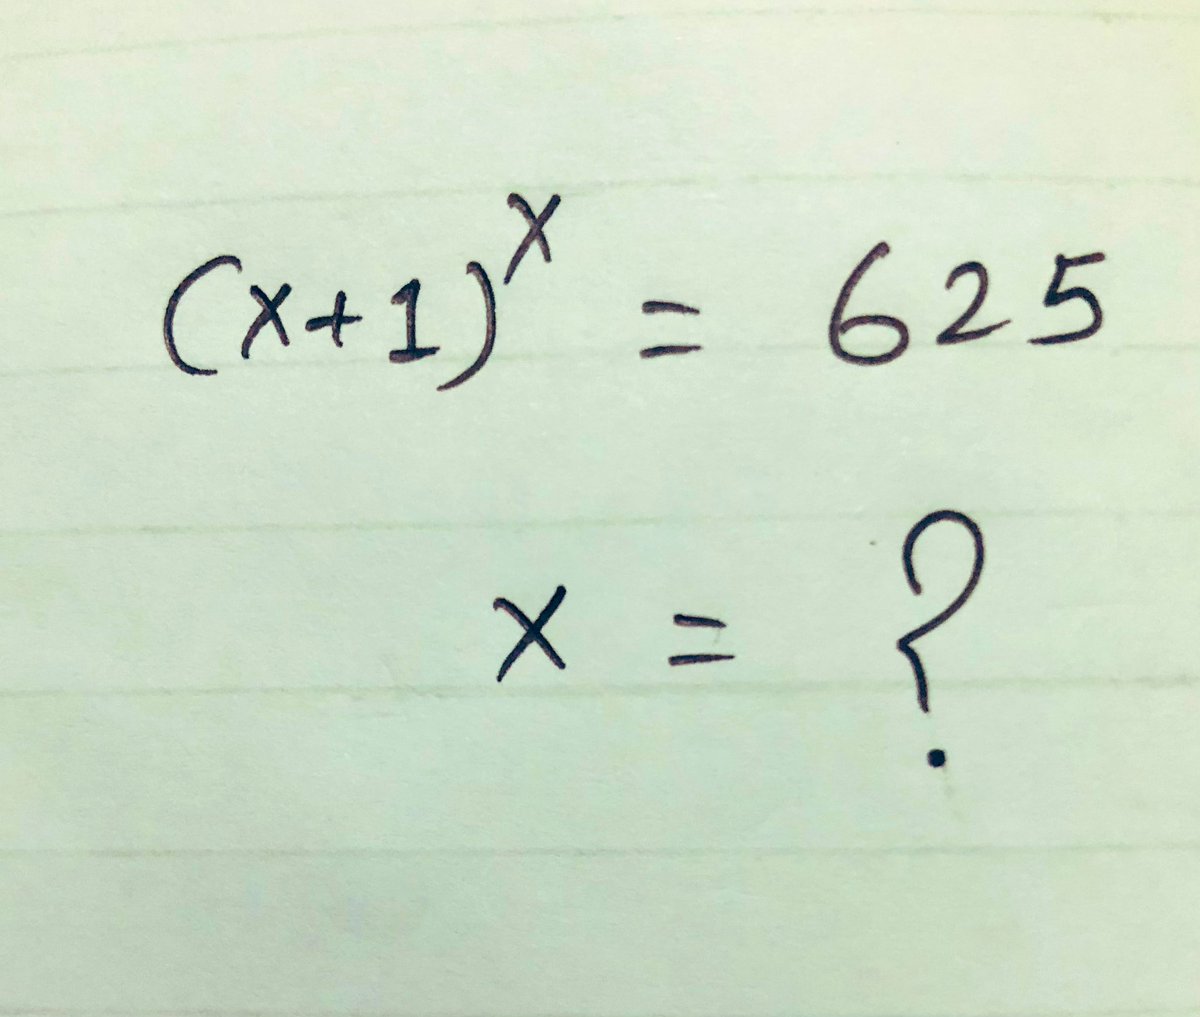 (x+1)^x = 625
x = ?